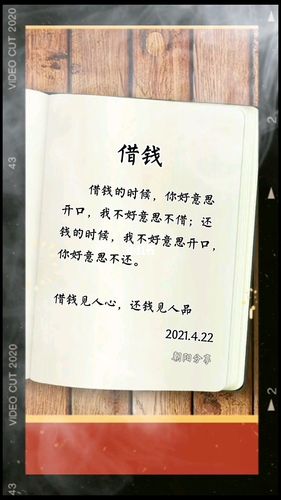 VIDEO CUT 2020
2
43
借钱
借钱的时候，你好意思
开口，我不好意思不借；还
钱的时候，我不好意思开口，
你好意思不还。
借钱见人心，还钱见人品
2021.4.22
朝阳分享
VIDEO CUT 2020
2
43